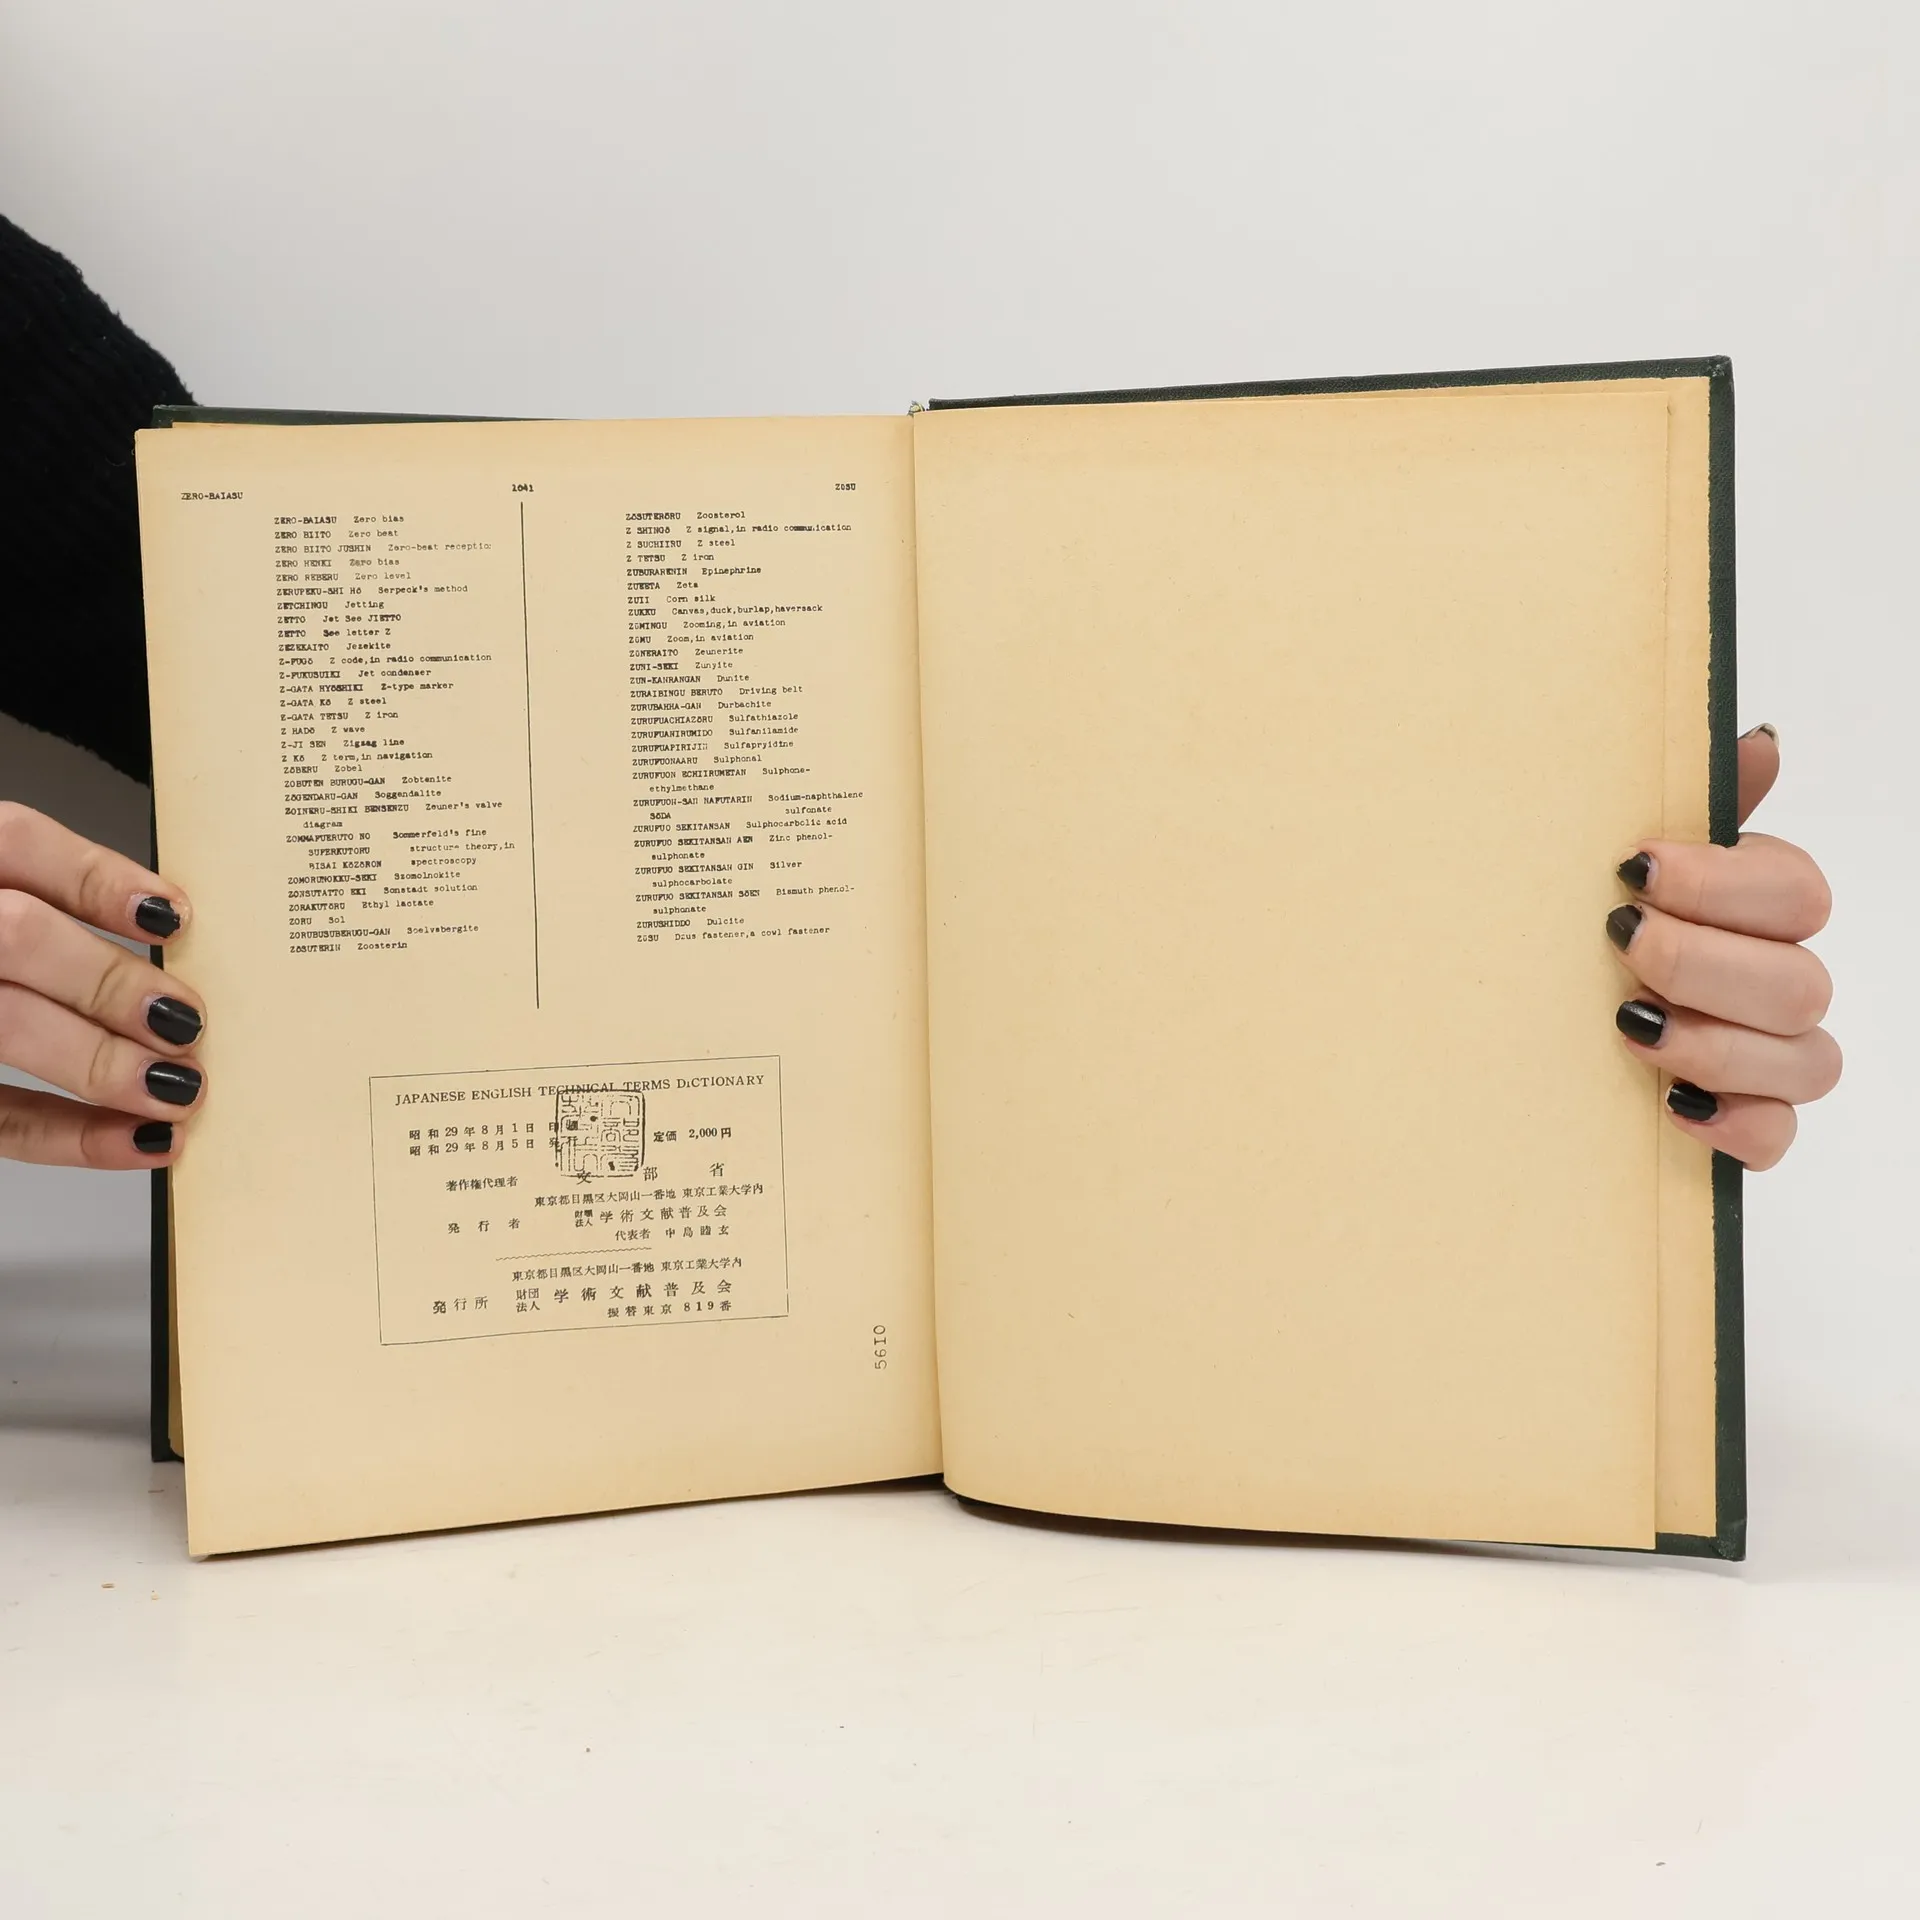 ZERO-BAIASU 1041 ZŌSU
ZERO-BAIASU Zero bias
ZERO BIITO Zero beat
ZERO BIITO JUSHIN Zero-beat reception
ZERO HENKI Zero bias
ZERO REBERU Zero level
ZERUPEKU-SHI HŌ Serpeck's method
ZETCHINGU Jetting
ZETTO Jet See JIETTO
ZETTO See letter Z
ZEZEKAITO Jezekite
Z-FUGŌ Z code,in radio communication
Z-FUKUSUIKI Jet condenser
Z-GATA HYŌSHIKI Z-type marker
Z-GATA KŌ Z steel
Z-GATA TETSU Z iron
Z HADŌ Z wave
Z-JI SEN Zigzag line
Z KŌ Z term,in navigation
ZŌBERU Zobel
ZOBUTEN BURUGU-GAN Zobtenite
ZŌGENDARU-GAN Soggendalite
ZOINERU-SHIKI BENSENZU Zeuner's valve
diagram
ZOMMAFUERUTO NO Sommerfeld's fine
SUPERKUTORU structure theory,in
BISAI KŌZŌRON spectroscopy
ZOMORUNOKKU-SEKI Szomolnokite
ZONSUTATTO EKI Sonstadt solution
ZORAKUTŌRU Ethyl lactate
ZORU Sol
ZORUBUSUBERUGU-GAN Soelvsbergite
ZŌSUTERIN Zoosterin
ZŌSUTERŌRU Zoosterol
Z SHINGŌ Z signal,in radio communication
Z SUCHIIRU Z steel
Z TETSU Z iron
ZUBURARENIN Epinephrine
ZUEETA Zeta
ZUII Corn silk
ZUKKU Canvas,duck,burlap,haversack
ZŪMINGU Zooming,in aviation
ZŪMU Zoom,in aviation
ZŪNERAITO Zeunerite
ZUNI-SEKI Zunyite
ZUN-KANRANGAN Dunite
ZURAIBINGU BERUTO Driving belt
ZURUBAHHA-GAN Durbachite
ZURUFUACHIAZŌRU Sulfathiazole
ZURUFUANIRUMIDO Sulfanilamide
ZURUFUAPIRIJIN Sulfapryidine
ZURUFUONAARU Sulphonal
ZURUFUON ECHIIRUMETAN Sulphone-
ethylmethane
ZURUFUOH-SAN NAFUTARIN Sodium-naphthalene
SŌDA sulfonate
ZURUFUO SEKITANSAN Sulphocarbolic acid
ZURUFUO SEKITANSAN AEN Zinc phenol-
sulphonate
ZURUFUO SEKITANSAN GIN Silver
sulphocarbolate
ZURUFUO SEKITANSAN SŌEN Bismuth phenol-
sulphonate
ZURUSHIDDO Dulcite
ZŪSU Dzus fastener,a cowl fastener
JAPANESE ENGLISH TECHNICAL TERMS DICTIONARY
昭和29年8月1日 印刷
昭和29年8月5日 発行
定価 2,000円
著作権代理者 文部省
東京都目黒区大岡山一番地 東京工業大学内
発行者 財団法人 学術文献普及会
代表者 中島 玄
東京都目黒区大岡山一番地 東京工業大学内
発行所 財団法人 学術文献普及会
振替東京 819番
5610